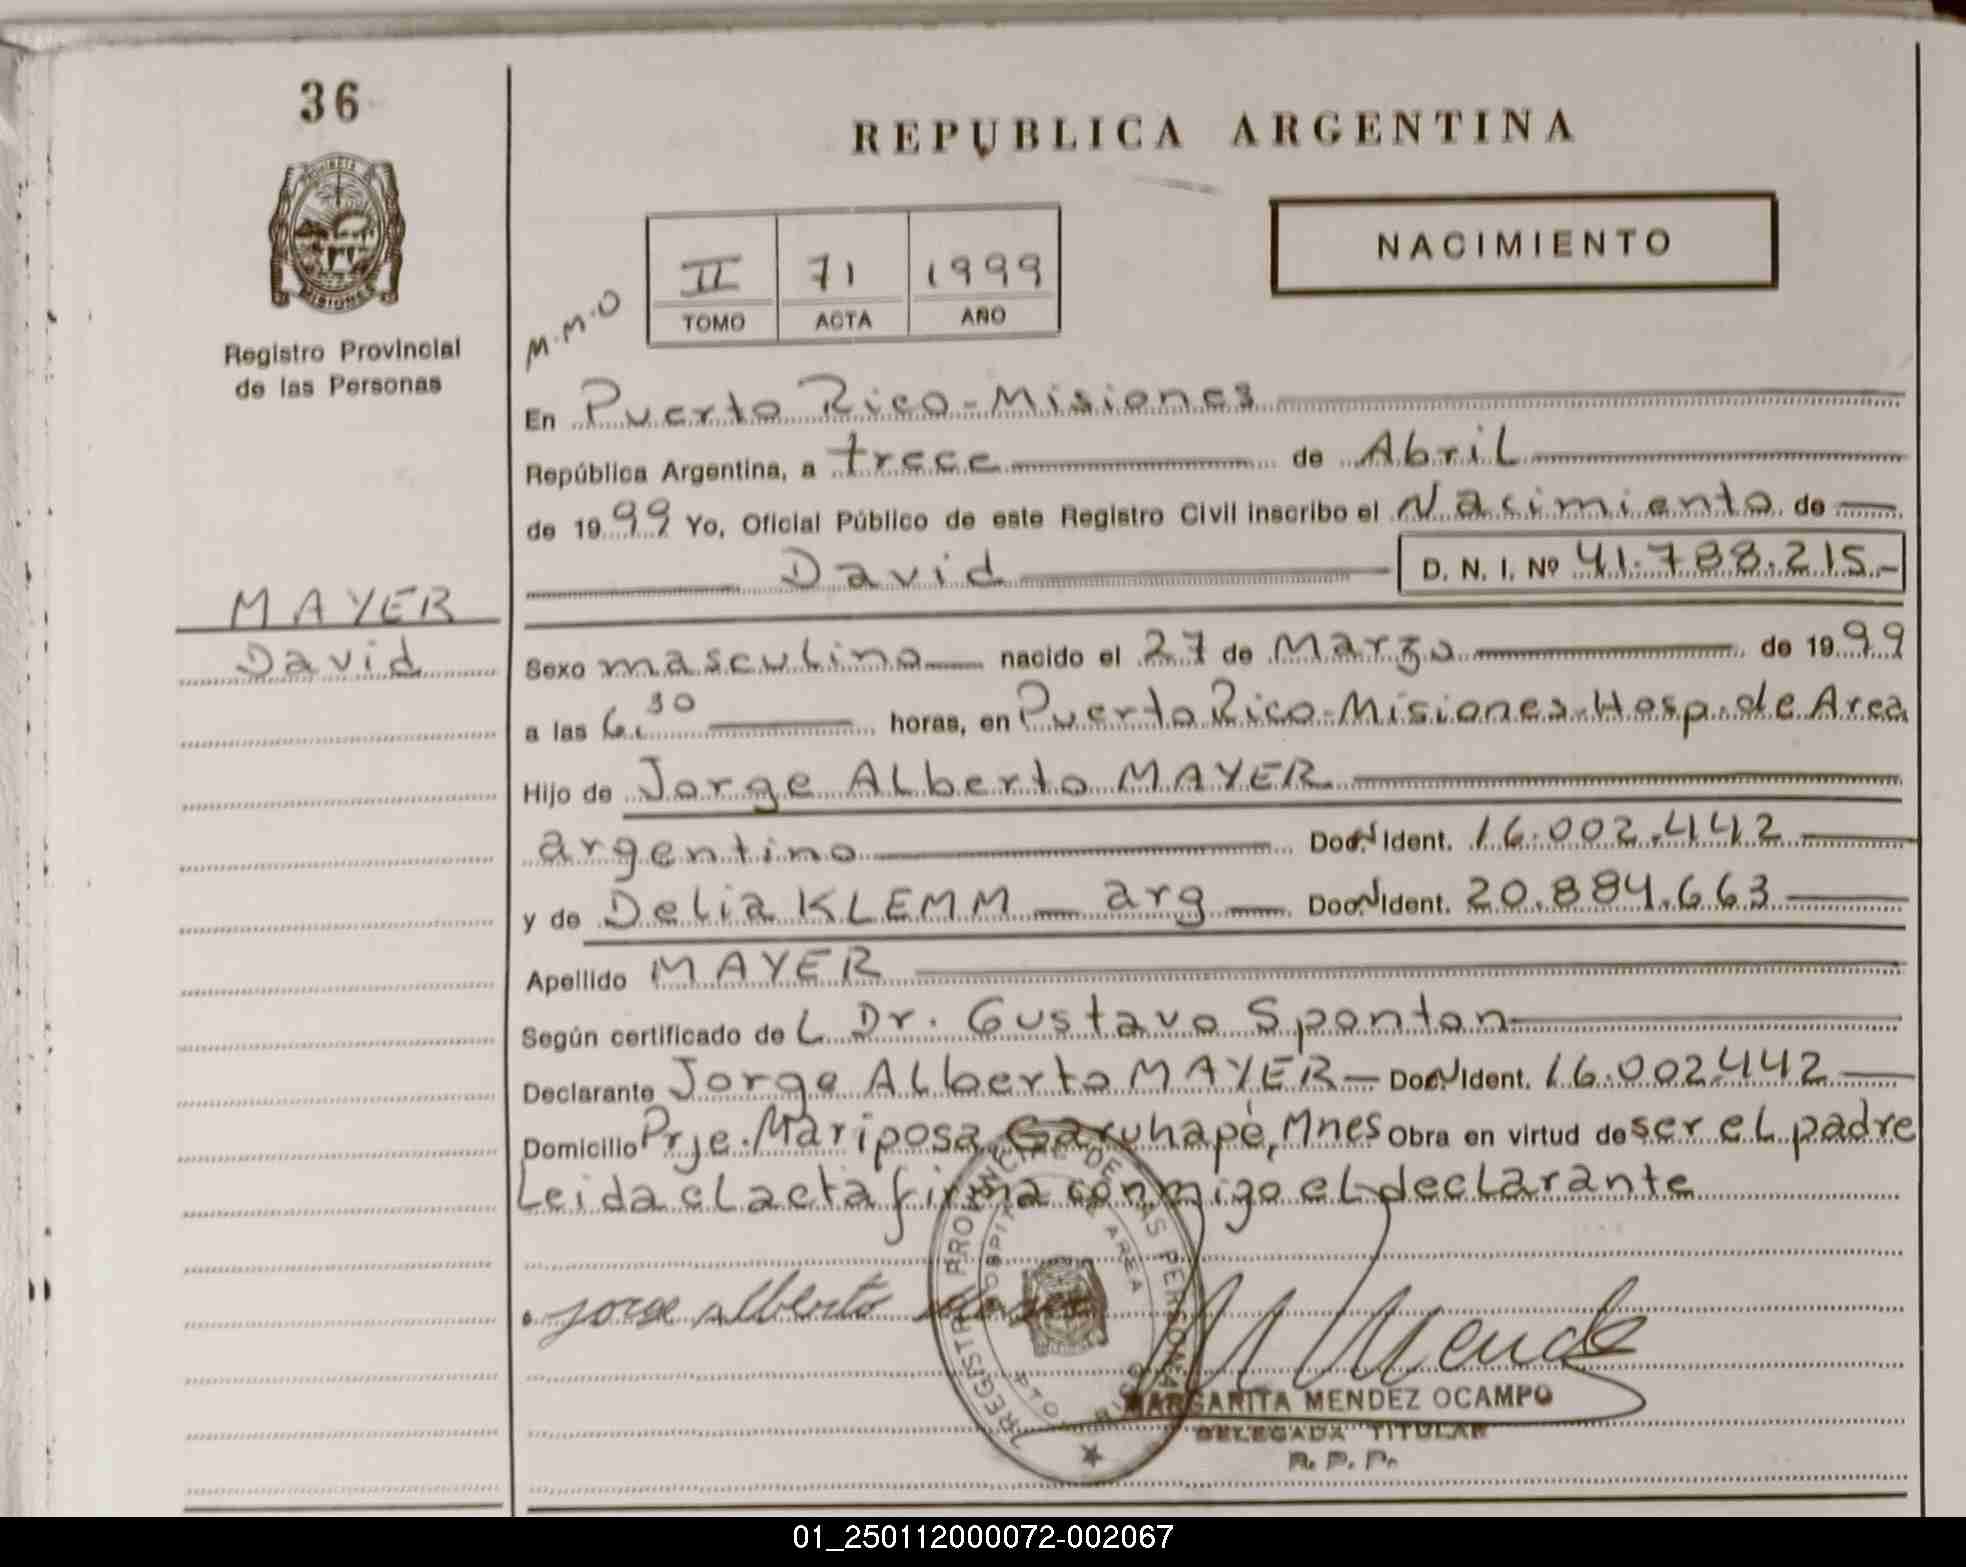 36
REPUBLICA ARGENTINA
NACIMIENTO
II 71 1999
TOMO ACTA AÑO
M.M.O
MISIONES
Registro Provincial
de las Personas
En Puerto Rico-Misiones
República Argentina, a trece de Abril
de 1999 Yo, Oficial Público de este Registro Civil inscribo el Nacimiento de
David D. N. I. Nº 41.788.215.-
MAYER
David
Sexo masculino nacido el 27 de Marzo de 1999
a las 6.30 horas, en Puerto Rico-Misiones-Hosp. de Area
Hijo de Jorge Alberto MAYER
argentino Doc. Ident. 16.002.442
y de Delia KLEMM - arg - Doc. Ident. 20.884.663
Apellido MAYER
Según certificado de L Dr. Gustavo Sponton
Declarante Jorge Alberto MAYER - Doc. Ident. 16.002.442
Domicilio Prje. Mariposa, Garuhapé, Mnes Obra en virtud de ser el padre
Leida el acta firma conmigo el declarante
REGISTRO PROVINCIAL DE LAS PERSONAS
AREA
Jorge Alberto
M Mendez
MARGARITA MENDEZ OCAMPO
DELEGADA TITULAR
R. P. P.
01_250112000072-002067